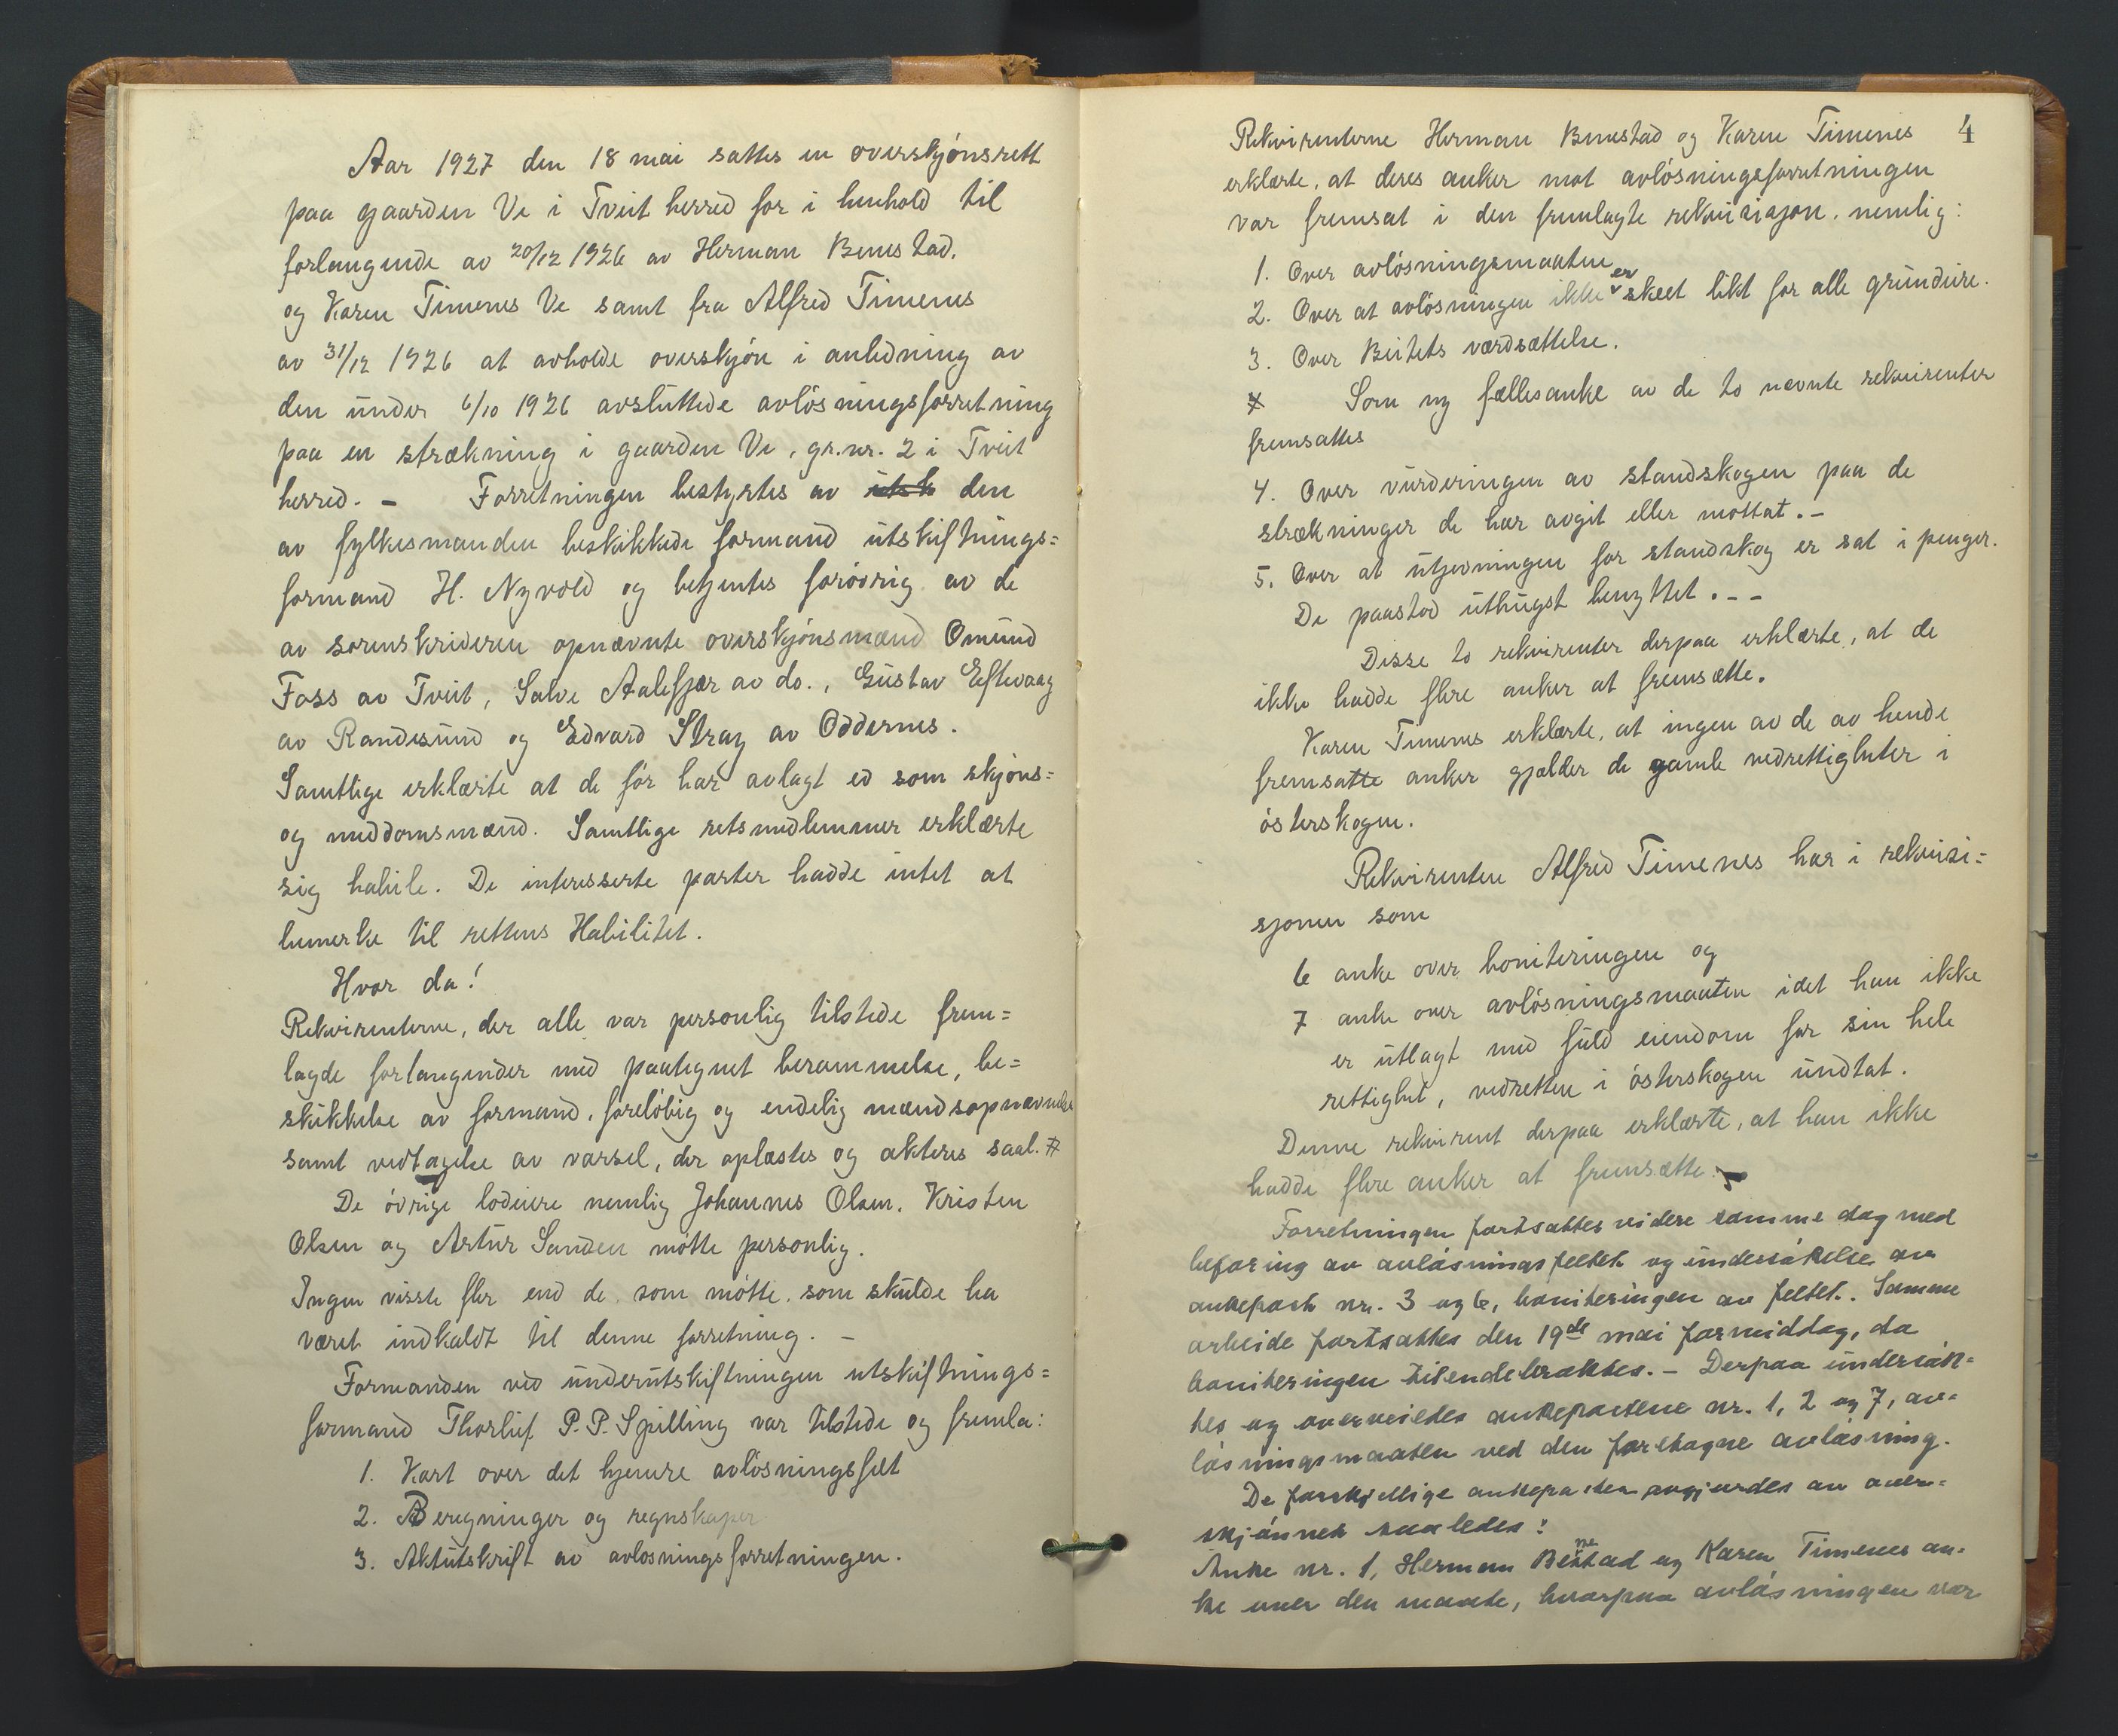 Aar 1927 den 18 mai sattes en overskjønsrett
paa gaarden Ve i Tveit herred for i henhold til
forlangende av 20/12 1926 av Herman Benestad,
og Karen Timenes Ve samt fra Alfred Timenes
av 31/12 1926 at avholde overskjøn i anledning av
den under 6/10 1926 avsluttede avløsningsforretning
paa en strækning i gaarden Ve, gr.nr. 2 i Tveit
herred. – Forretningen bestyrtes av den
av fylkesmanden beskikkede formand utskiftnings=
formand H. Nyvold og betjentes forøvrig av de
av sorenskriveren opnævnte overskjønsmænd Omund
Foss av Tveit, Salve Aalefjær av do., Gustav Eftevaag
av Randesund og Edvard Stray av Oddernes.
Samtlige erklærte at de før har avlagt ed som skjøns=
og meddomsmænd. Samtlige retsmedlemmer erklærte
sig habile. De interesserte parter hadde intet at
bemerke til rettens Habilitet.
Hvor da!
Rekvirenterne, der alle var personlig tilstede frem=
lagde forlangender med paategnet berammelse, be=
skikkelse av formand, foreløbig og endelig mændsopnævnelse
samt vedtagelse av varsel, der oplæstes og akteres saal. #
De øvrige lodeiere nemlig Johannes Olsen, Kristen
Olsen og Artur Sanden møtte personlig.
Ingen visste fler end de som møtte, som skulde ha
været indkaldt til denne forretning. –
Formanden ved underutskiftningen utskiftnings=
formand Thorleif P. P. Spilling var tilstede og fremla:
1. Kart over det hjemre avløsningsfelt
2. Beregninger og regnskaper
3. Aktutskrift av avløsningsforretningen.
4
Rekvirenterne Herman Benestad og Karen Timenes
erklærte, at deres anker mot avløsningsforretningen
var fremsat i den fremlagte rekvisisjon, nemlig:
1. Over avløsningsmaaten
2. Over at avløsningen ikke er skeet likt for alle grundeire.
3. Over Beitets værdsættelse.
# Som ny fællesanke av de to nævnte rekvirenter
fremsattes
4. Over vurderingen av standskogen paa de
strækninger de har avgit eller mottat. –
5. Over at utjevningen for standskog er sat i penger.
De paastod uthugst benyttet. – –
Disse to rekvirenter derpaa erklærte, at de
ikke hadde flere anker at fremsætte.
Karen Timenes erklærte, at ingen av de av hende
fremsatte anker gjælder de gamle vedrettigheter i
østerskogen.
Rekvirenten Alfred Timenes har i rekvisi=
sjonen som
6 anke over boniteringen og
7 anke over avløsningsmaaten idet han ikke
er utlagt med fuld eiendom for sin hele
rettighet, vedretten i østerskogen undtat.
Denne rekvirent derpaa erklærte, at han ikke
hadde flere anker at fremsætte.
Forretningen fortsattes videre samme dag med
befaring av avløsningsfeltet og undersøkelse av
ankepost nr. 3 og 6, boniteringen av feltet. Samme
arbeide fortsattes den 19de mai formiddag, da
boniteringen tilendebraktes. – Derpaa undersøk=
tes og overveiedes ankepostene nr. 1, 2 og 7, av=
løsningsmaaten ved den foretagne avløsning.
De forskjellige ankeposter avgjordes av over=
skjønnet saaledes:
Anke nr. 1, Herman Benestad og Karen Timenes an=
ke over den maate, hvorpaa avløsningen var